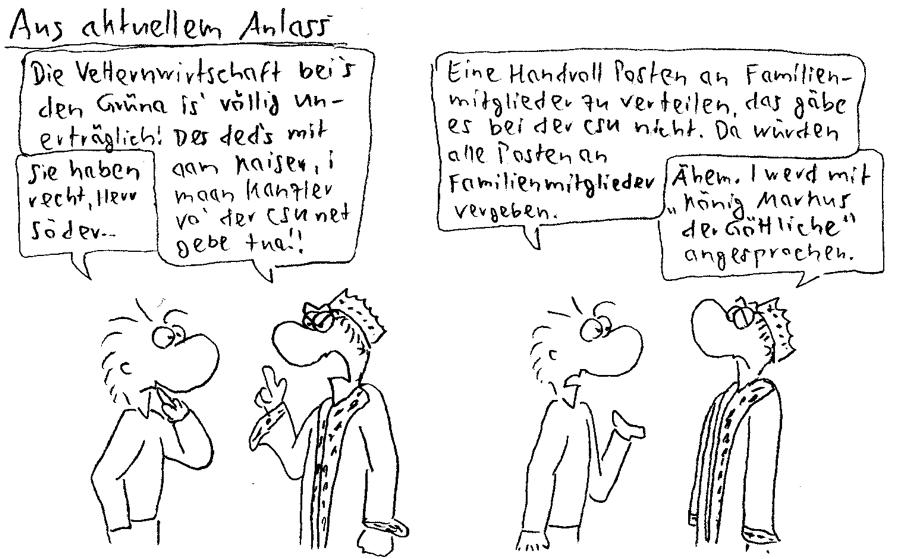 Aus aktuellem Anlass
Die Vetternwirtschaft bei's
den Grüna is' völlig un-
erträglich! Des ded's mit
aam Kaiser, i
maan Kanzler
vo' der CSU net
gebe tua!!
Sie haben
recht, Herr
Söder...
Eine Handvoll Posten an Familien-
mitglieder zu verteilen, das gäbe
es bei der CSU nicht. Da würden
alle Posten an
Familienmitglieder
vergeben.
Ähem. I werd mit
„König Markus
der Göttliche"
angesprochen.